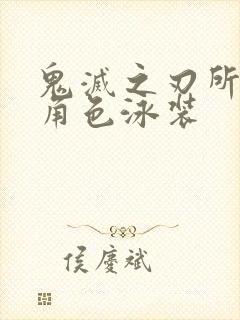 鬼滅之刃所
角色泳装
侯慶斌